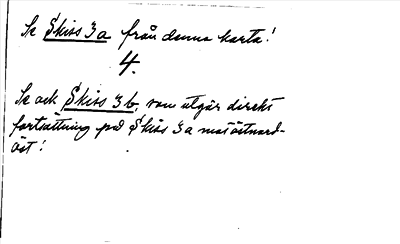 Se Skiss 3a från denna karta!
4.
Se ock Skiss 3b, som utgör direkt
fortsättning på Skiss 3a mot ostnord-
ost!